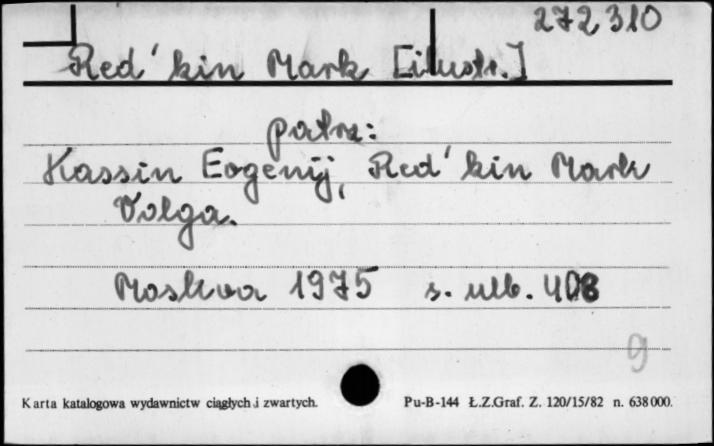 272310
Red'kin Mark [ilustr.]
patrz:
Kassin Evgenij, Red'kin Mark
Volga.
Moskva 1975 s. nlb. 408
9
Karta katalogowa wydawnictw ciągłych i zwartych. Pu-B-144 Ł.Z.Graf. Z. 120/15/82 n. 638000.